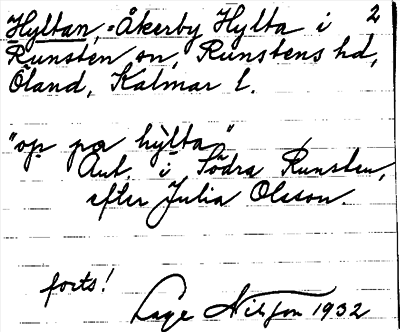 Hyltan, = Åkerby Hylta i 2
Runsten sn, Runstens hd,
Öland, Kalmar l.
"op pa hylta"
Ant. i Södra Runsten,
efter Julia Olsson.
forts!
Lage Nilsson 1932